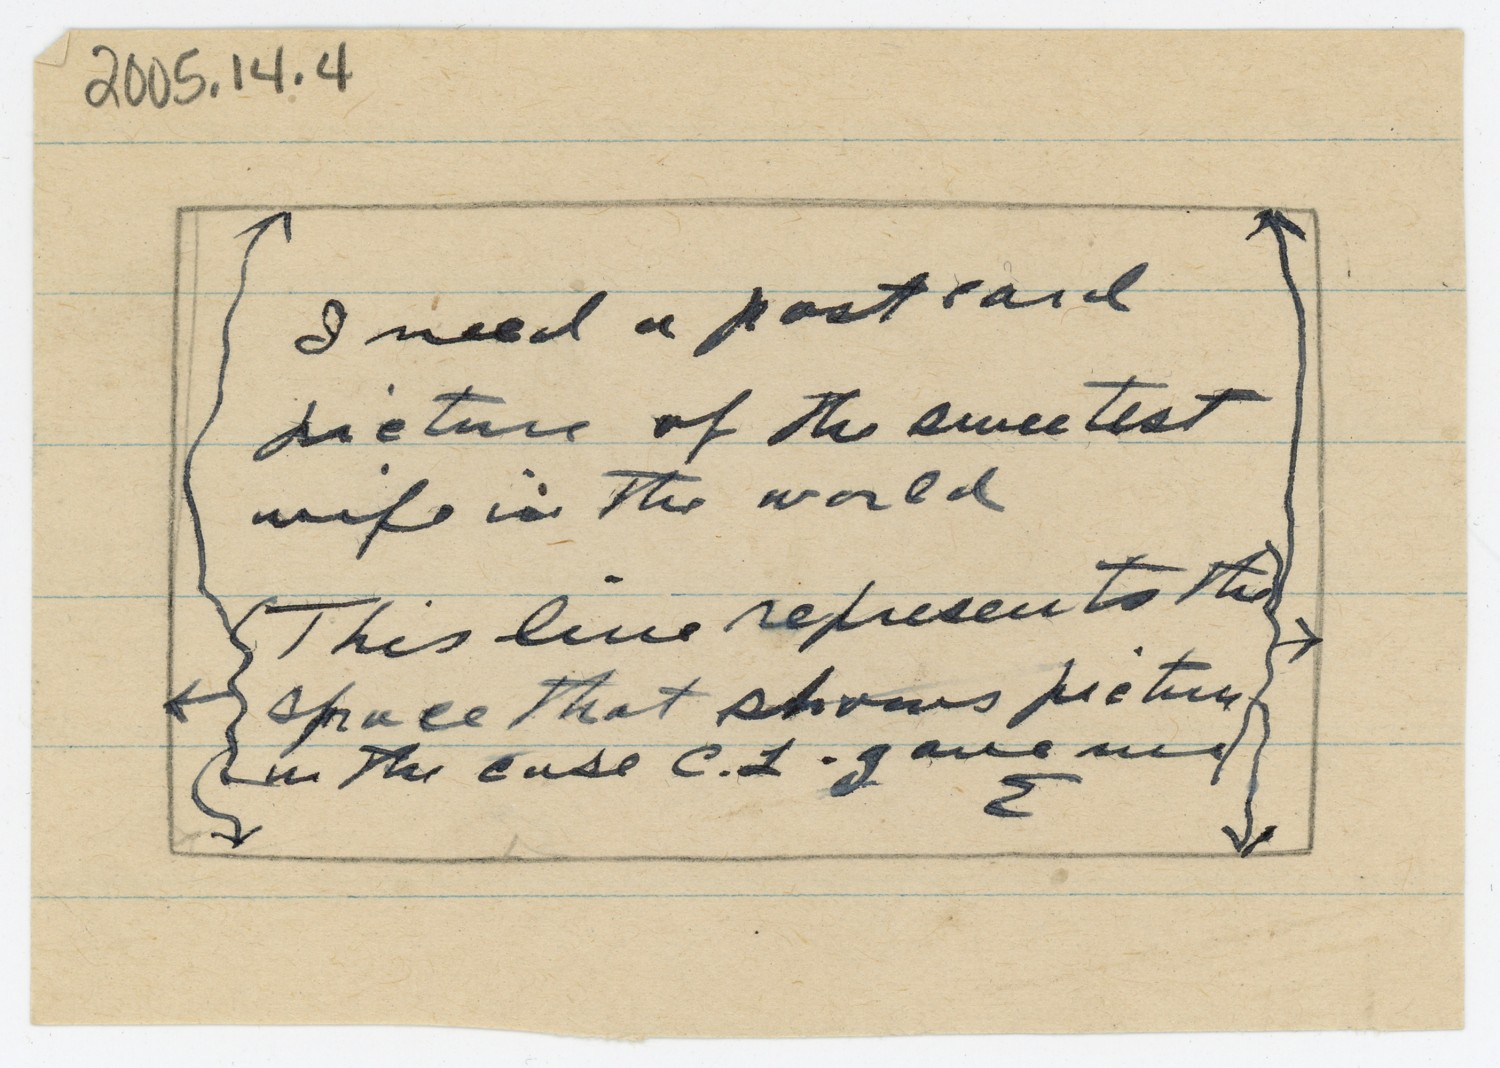 2005.14.4
I need a post card
picture of the sweetest
wife in the world
This line represents the
space that shows picture
in the case C.L. gave me
Σ